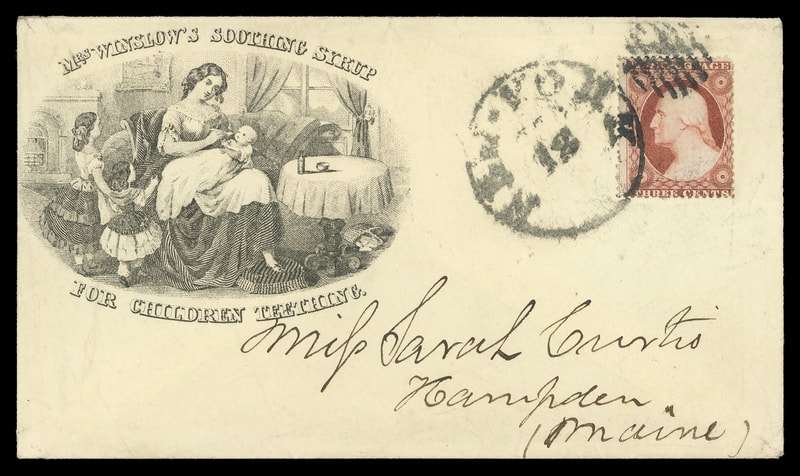 MRS WINSLOW'S SOOTHING SYRUP
FOR CHILDREN TEETHING.
NEW-YORK
12
POSTAGE
THREE CENTS
Miss Sarah Curtis
Hampden
(Maine)